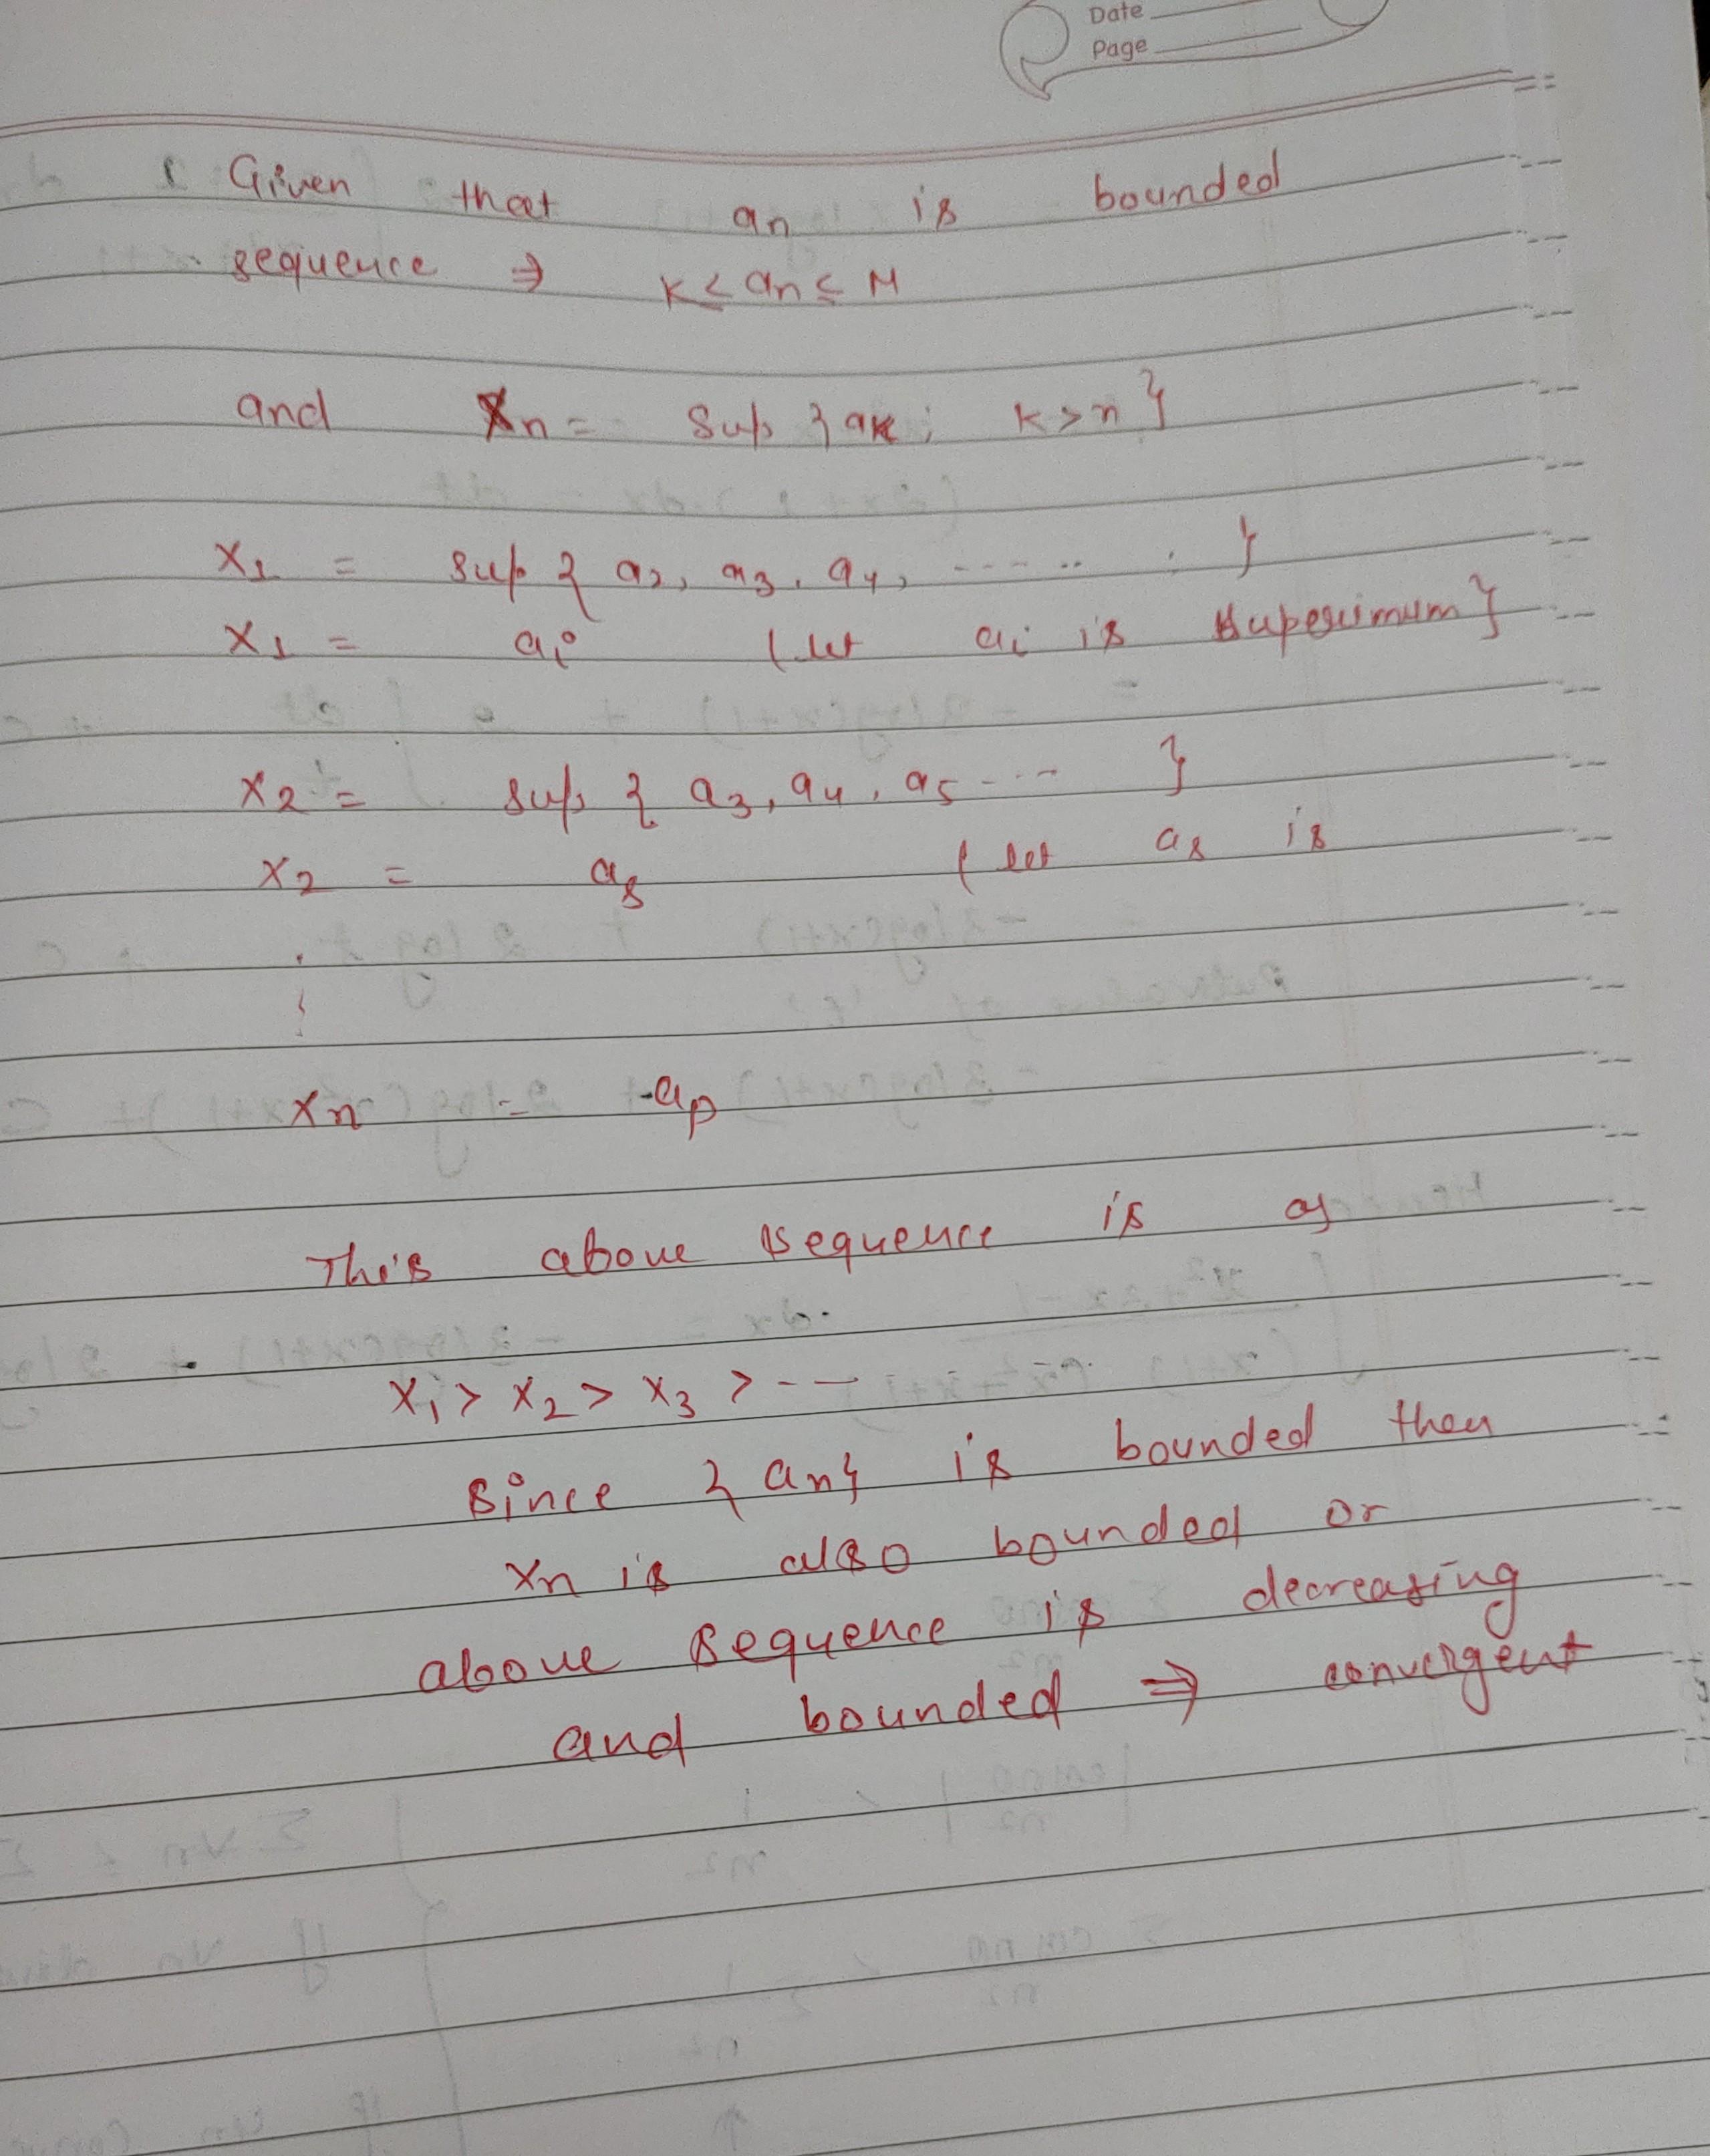 Date
Page
Given that an is bounded
sequence ⇒ K ≤ an ≤ M
and Xn = Sup { ak ; K > n }
X1 = Sup { a2, a3, a4, ------ }
X1 = ai (let ai is superimum}
X2 = sup { a3, a4, a5 --- }
X2 = as ( let as is
Xn = ap
This above sequence is as
X1 > X2 > X3 > ---
Since { an } is bounded then
Xn is also bounded or
above sequence is decreasing
and bounded ⇒ convergent